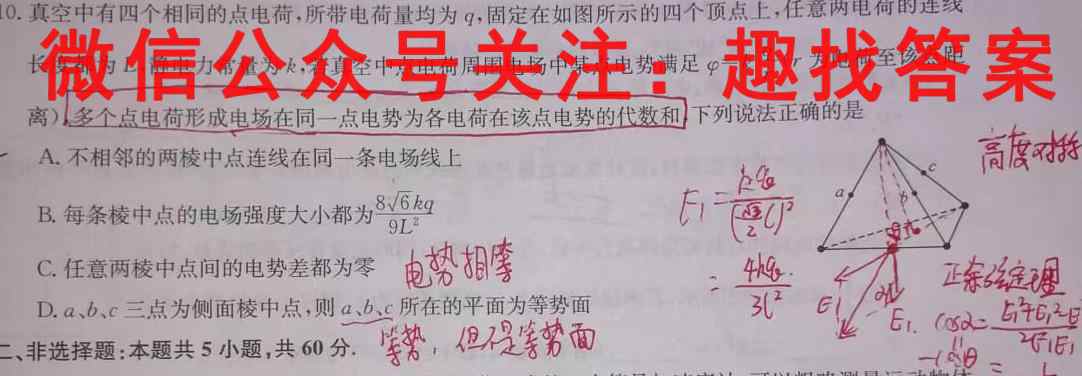 10. 真空中有四个相同的点电荷,所带电荷量均为 q,固定在如图所示的四个顶点上,任意两电荷的连线
长度均为 L,静电力常量为 k,若真空中点电荷周围电场中某点电势满足 φ= r 为电荷至该点距
微信公众号关注:趣找答案
离),多个点电荷形成电场在同一点电势为各电荷在该点电势的代数和,下列说法正确的是
A. 不相邻的两棱中点连线在同一条电场线上
B. 每条棱中点的电场强度大小都为8√6kq/9L²
C. 任意两棱中点间的电势差都为零
D. a、b、c 三点为侧面棱中点,则 a、b、c 所在的平面为等势面
二、非选择题:本题共 5 小题,共 60 分.
电势相等
等势, 但不是等势面
E₁=kq/(√3/2 L)²
=4kq/3L²
a
b
c
高度对称
E₁
E₁
正余弦定理
cosα=E₁²+E₁²-E/2E₁E₁
-cosθ =